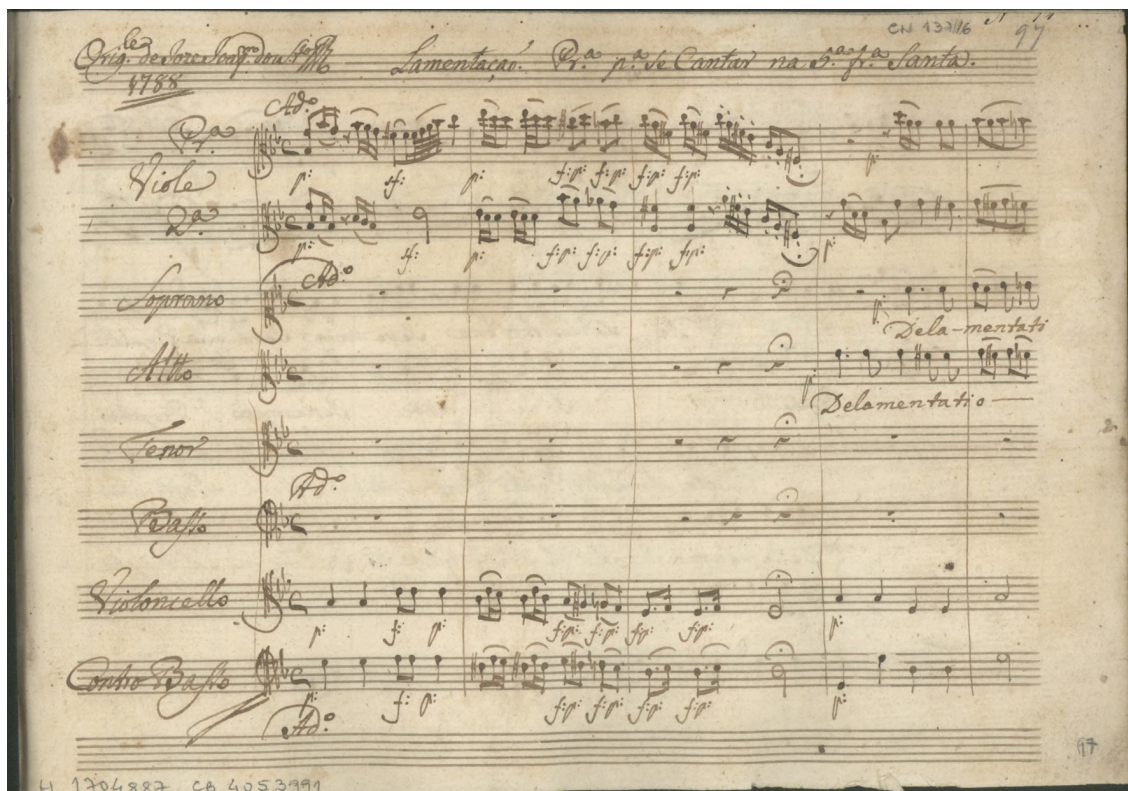 CN 137/16 97
Orig.le de Joze Joaq.m dou S.tos Lamentaçaõ. Pr.a p.a se Cantar na 5.a fr.a Santa.
1788
Ad.o
Pr.a
p: sf: p: f:p: f:p: f:p: f:p: p:
Viole
2.a
p: sf: p: f:p: f:p: f:p: f:p: p:
Ad.o
Soprano
p:
Dela-mentati
Altto
p:
Delamentatio
Tenor
Ad.o
Basso
Violoncello
p: f: p: f:p: f:p: f:p: f:p: p:
Contro Basso
p: f: p: f:p: f:p: f:p: f:p: p:
Ad.o
97
H 1704887 CB 4053991